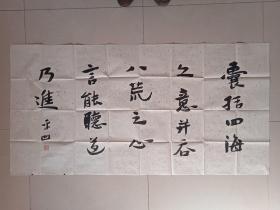 囊括四海
之意并吞
八荒之心
言能听道
乃進 平凹